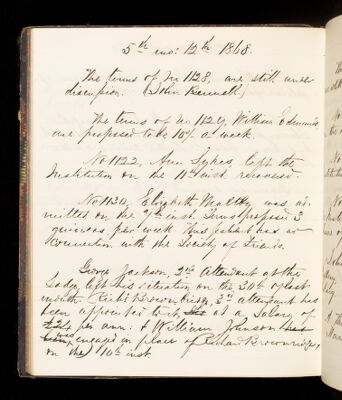 5th mo: 12th 1868.
The terms of No 1128, are still under
discussion. (John Bennett)
The terms of No 1129, William Edmunds
are proposed to be 10/- a week.
No 1122, Ann Sykes, left the
Institution on the 11th inst. recovered.
No 1130, Elizabeth Maltby was ad-
mitted on the 9th inst. Terms proposed 3
guineas per week. This patient has no
connection with the Society of Friends.
George Jackson, 2nd Attendant at the
Lodge, left his situation on the 30th of last
month. Brownridge, 3rd attendant has
been appointed to it, at a Salary of
per ann: & William Johnson has
been engaged in place of Brownridge,
on the 10th inst.